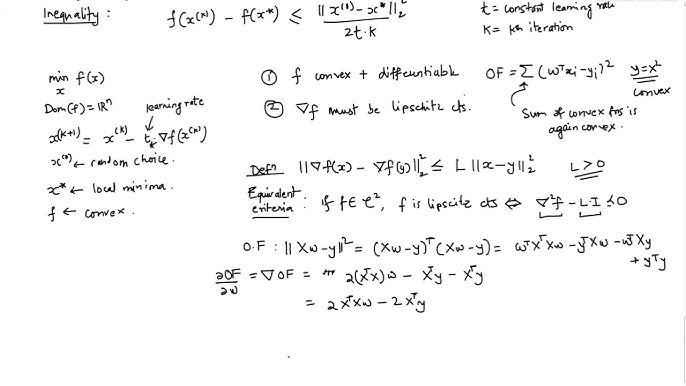 Inequality : f(x^(k)) - f(x*) ≤ ||x^(0) - x*||_2^2 / 2t·k
t = constant learning rate
k = kth iteration
min_x f(x)
Dom(f) = ℝ^n
learning rate
x^(k+1) = x^(k) - t_k ∇f(x^(k))
x^(0) ← random choice.
x* ← local minima.
f ← convex.
① f convex + differentiable OF = Σ(w^T x_i - y_i)^2 y=x^2
convex
② ∇f must be lipschitz cts.
Sum of convex fns is
again convex.
Defn ||∇f(x) - ∇f(y)||_2^2 ≤ L ||x-y||_2^2 L>0
Equivalent
criteria : If f∈ C^2, f is lipscitz cts ⇔ ∇^2f - L·I ≼ 0
O.F : ||Xw-y||^2 = (Xw-y)^T (Xw-y) = w^T X^T X w - y^T X w - w^T X y
+ y^T y
∂OF/∂w = ∇OF = 2(X^T X)w - X^T y - X^T y
= 2X^T X w - 2X^T y